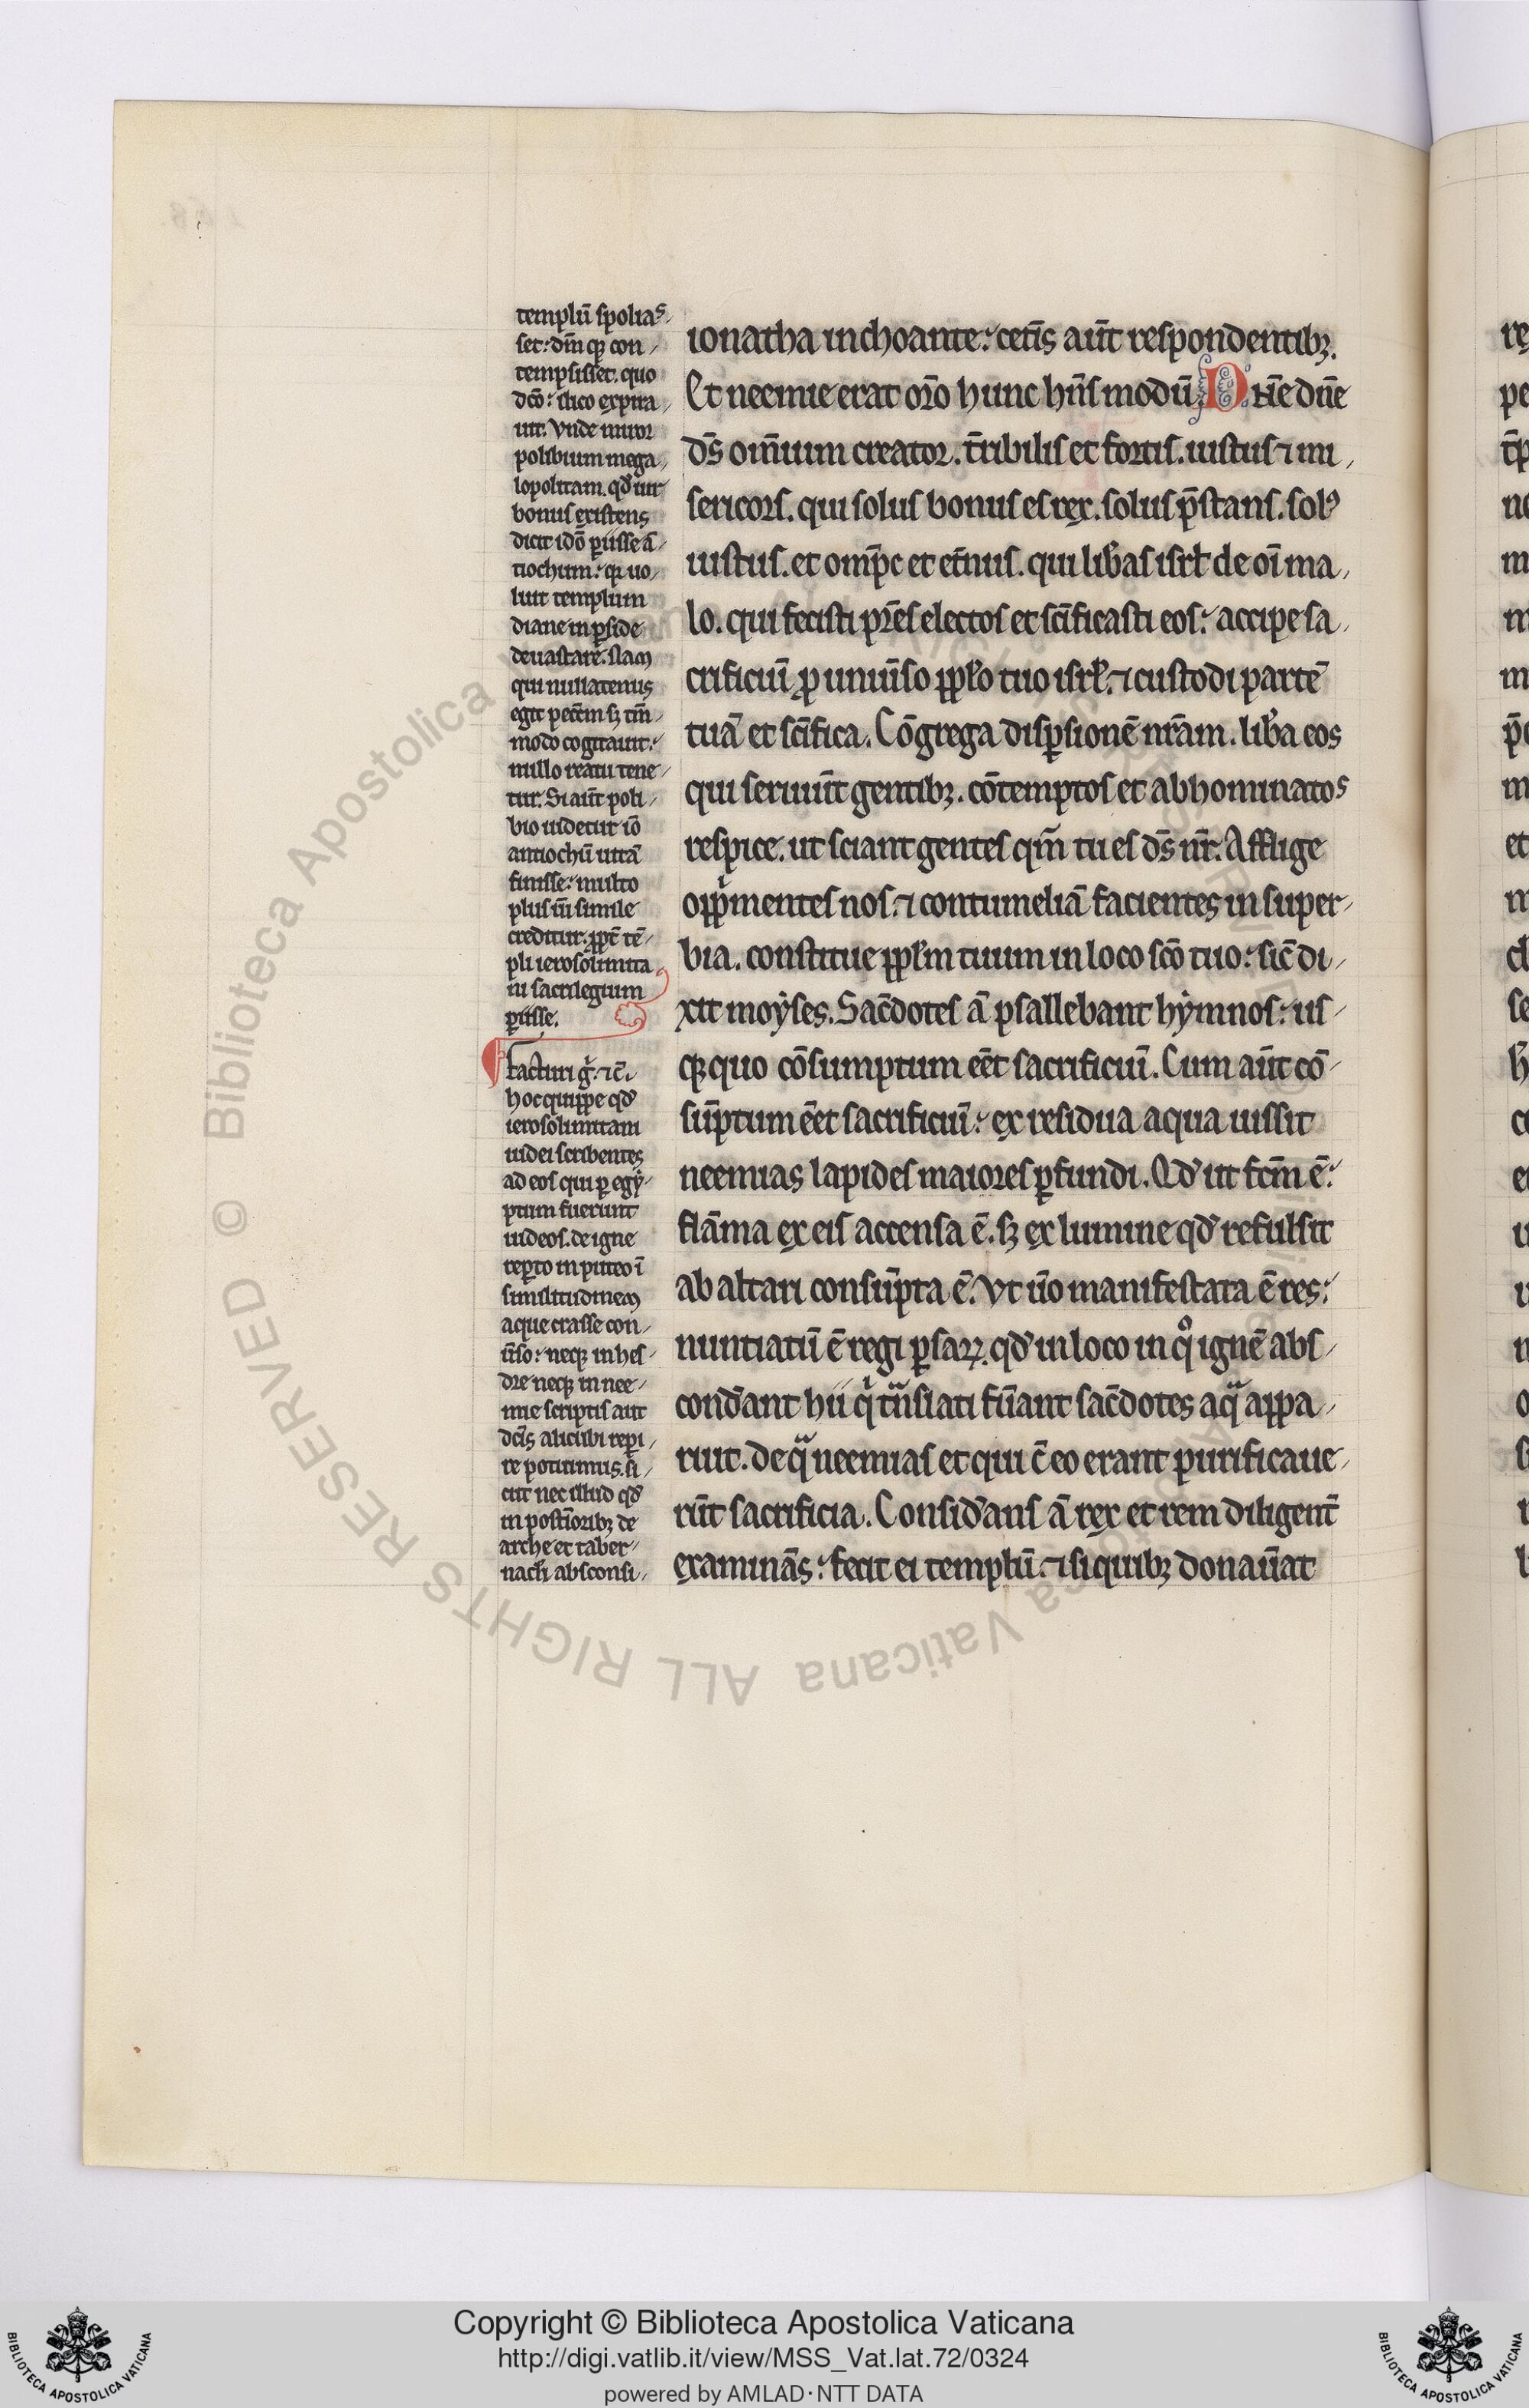 templū spolias⸗
set: dm̄ qꝫ con⸗
tempsisset. quo
dcō: ilico expira⸗
uit. Vnde miror
polibium mega⸗
lopolitam. qd̓ uir
bonus existens
dicit idō ꝑiisse ā⸗
tiochum: qꝛ uo⸗
luit templum
diane in ꝑside
deuastare. Nam
qui nullatenus
egit pctm̄ sꝫ tm̄⸗
modo cogitauit:
nullo reatu tene⸗
tur. Si aūt poli⸗
bio uidetur iō
antiochū uitā
finisse: multo
plus ūi simile
creditur: ꝓpt̄ tē⸗
pli ierosolimita⸗
ni sacrilegium
ꝑiisse.
facturi g̓. ⁊c̄.
hoc quippe qd̓
ierosolimitani
iudei scribentes
ad eos qui ꝑ egẏ⸗
ptum fuerunt
iudeos. de igne
reꝑto in puteo ī
similitudinem
aque crasse con⸗
ūso: neqꝫ in hes⸗
dre neqꝫ in nee⸗
mie scriptis aut
dcīs alicubi reꝑi⸗
re potuimus. si⸗
cut nec illud qd̓
in postīoribꝫ de
arche et taber⸗
nacł̓i absconsi⸗
ionatha inchoante: cetīs aūt respondentibꝫ.
Et neemie erat orō hunc hn̄s modū: Dn̄e dn̄e
ds̄ om̄ium creator. t̄ribilis et fortis. iustus ⁊ mi⸗
sericors. qui solus bonus es rex. solus p̄stans. solꝰ
iustus. et omp̄c et et̄nus. qui lib̓as isrł de oī ma⸗
lo. qui fecisti pr̄es electos et sc̄ificasti eos: accipe sa⸗
crificiū ꝓ uniūso ppło tuo isrł. ⁊ custodi partē
tuā et sc̄ifica. Cōgrega disꝑsionē nr̄am. lib̓a eos
qui seruiūt gentibꝫ. cōtemptos et abhominatos
respice. ut sciant gentes qm̄ tu es ds̄ nr̄. Afflige
opp̓mentes nos. ⁊ contumeliā facientes in super⸗
bia. constitue ppłm tuum in loco scō tuo: sic̄ di⸗
xit moẏses. Sac̄dotes ā psallebant hẏmnos: us⸗
qꝫ quo cōsumptum eēt sacrificiū. Cum aūt cō⸗
sūptum eēt sacrificiū: ex residua aqua iussit
neemias lapides maiores ꝑfundi. Qd̓ ut fcm̄ ē:
flāma ex eis accensa ē. sꝫ ex lumine qd̓ refulsit
ab altari consūpta ē. Vt ūo manifestata ē res:
nuntiatū ē regi ꝑsaꝝ. qd̓ in loco in qͦ ignē abs⸗
cond̓ant hii qͥ tͣnslati fūant sac̄dotes aqͣ appa⸗
ruit. de qͣ neemias et qui c̄ eo erant purificaue⸗
rūt sacrificia. Consid̓ans ā rex et rem diligent̄
examinās: fecit ei templū. ⁊ si quibꝫ donaūat
Copyright © Biblioteca Apostolica Vaticana
http://digi.vatlib.it/view/MSS_Vat.lat.72/0324
powered by AMLAD·NTT DATA